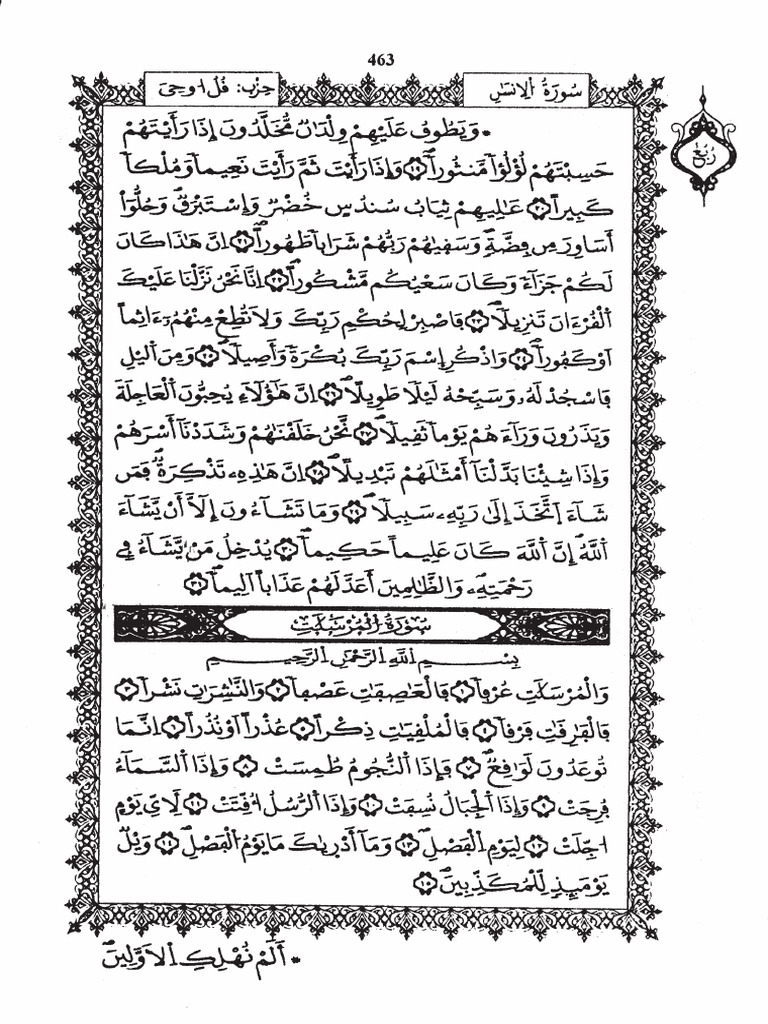 463
سُورَةُ اَ۬لِانسَٰنِ
حِزْب: قُلُ ا۟وحِيَ
رُبُع
* وَيَطُوفُ عَلَيْهِمْ وِلْدَٰنٌ مُّخَلَّدُونَ إِذَا رَأَيْتَهُمْ
حَسِبْتَهُمْ لُؤْلُؤاٗ مَّنثُوراٗۖ ١٩ وَإِذَا رَأَيْتَ ثَمَّ رَأَيْتَ نَعِيماٗ وَمُلْكاٗ
كَبِيراًۖ ٢٠ عَٰلِيهِمْ ثِيَابُ سُندُسٍ خُضْرٌ وَإِسْتَبْرَقٌۖ وَحُلُّوٓاْ
أَسَاوِرَ مِن فِضَّةٖ وَسَق۪يٰهُمْ رَبُّهُمْ شَرَاباٗ طَهُوراًۖ ٢١ اِنَّ هَٰذَا كَانَ
لَكُمْ جَزَآءٗ وَكَانَ سَعْيُكُم مَّشْكُوراًۖ ٢٢ اِنَّا نَحْنُ نَزَّلْنَا عَلَيْكَ
اَ۬لْقُرْءَانَ تَنزِيلاٗۖ ٢٣ فَاصْبِرْ لِحُكْمِ رَبِّكَ وَلَا تُطِعْ مِنْهُمُۥٓ ءَاثِماً
اَوْ كَفُوراٗۖ ٢٤ وَاذْكُرِ اِ۪سْمَ رَبِّكَ بُكْرَةٗ وَأَصِيلاٗۖ ٢٥ وَمِنَ اَ۬ليْلِ
فَاسْجُدْ لَهُۥ وَسَبِّحْهُ لَيْلاٗ طَوِيلاًۖ ٢٦ اِنَّ هَٰٓؤُلَآءِ يُحِبُّونَ اَ۬لْعَاجِلَةَ
وَيَذَرُونَ وَرَآءَهُمْ يَوْماٗ ثَقِيلاٗۖ ٢٧ نَّحْنُ خَلَقْنَٰهُمْ وَشَدَدْنَآ أَسْرَهُمْ
وَإِذَا شِئْنَا بَدَّلْنَآ أَمْثَٰلَهُمْ تَبْدِيلاًۖ ٢٨ اِنَّ هَٰذِهِۦ تَذْكِرَةٞۖ فَمَن
شَآءَ اَ۪تَّخَذَ إِلَىٰ رَبِّهِۦ سَبِيلاٗۖ ٢٩ وَمَا تَشَآءُونَ إِلَّآ أَنْ يَّشَآءَ
اَ۬للَّهُۖ إِنَّ اَ۬للَّهَ كَانَ عَلِيماً حَكِيماٗۖ ٣٠ يُدْخِلُ مَنْ يَّشَآءُ فِي
رَحْمَتِهِۦۖ وَالظَّٰلِمِينَ أَعَدَّ لَهُمْ عَذَاباً اَلِيماًۖ ٣١
سُورَةُ اُ۬لْمُرْسَلَٰتِ
بِسْمِ اِ۬للَّهِ اِ۬لرَّحْمَٰنِ اِ۬لرَّحِيمِ
وَالْمُرْسَلَٰتِ عُرْفاٗ ١ فَالْعَٰصِفَٰتِ عَصْفاٗ ٢ وَالنَّٰشِرَٰتِ نَشْراٗ ٣
فَالْفَٰرِقَٰتِ فَرْقاٗ ٤ فَالْمُلْقِيَٰتِ ذِكْراً ٥ عُذْراً اَوْ نُذُراً ٦ اِنَّمَا
تُوعَدُونَ لَوَٰقِعٞۖ ٧ فَإِذَا اَ۬لنُّجُومُ طُمِسَتْ ٨ وَإِذَا اَ۬لسَّمَآءُ
فُرِجَتْ ٩ وَإِذَا اَ۬لْجِبَالُ نُسِفَتْ ١٠ وَإِذَا اَ۬لرُّسُلُ أُقِّتَتْ ١١ لِأَيِّ يَوْمٍ
ا۟جِّلَتْ ١٢ لِيَوْمِ اِ۬لْفَصْلِۖ ١٣ وَمَآ أَدْر۪يٰكَ مَا يَوْمُ اُ۬لْفَصْلِۖ ١٤ وَيْلٞ
يَوْمَئِذٖ لِّلْمُكَذِّبِينَۖ ١٥
* أَلَمْ نُهْلِكِ اِ۬لَاوَّلِينَۖ